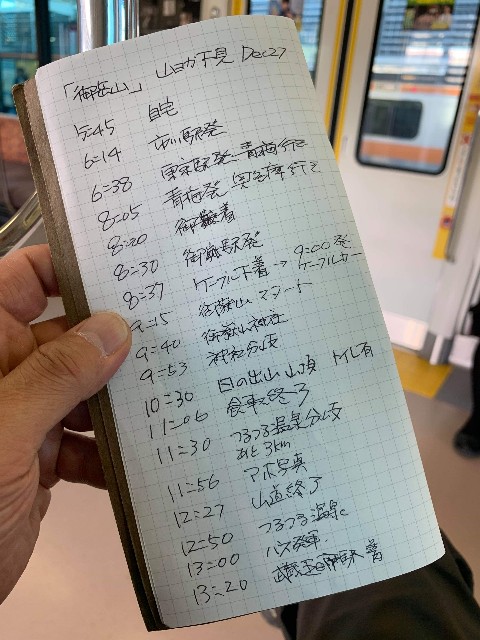 「御岳山」 山ヨガ下見 Dec27
5:45 自宅
6:14 市川駅発
6:38 東京駅発 青梅行き
8:05 青梅発 奥多摩行き
8:20 御嶽着
8:30 御嶽駅発
8:37 ケーブル下着 → 9:00発 ケーブルカー
9:15 御嶽山スタート
9:40 御嶽山神社
9:53 神社分岐
10:30 日の出山山頂 トイレ有
11:06 食事終了
11:30 つるつる温泉分岐
あと3km
11:56 アホ写真
12:27 山道終了
12:50 つるつる温泉
13:00 バス発車
13:20 武蔵五日市駅着